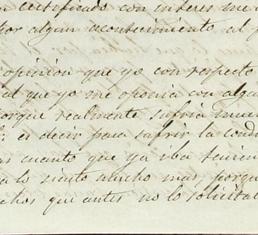 certificado con interes me
por algun acontecimiento al p
opinion que yo con respecto
al que yo me oponia con algu
porque realmente sufria mucho
es decir para sufrir la cond
cuanto que ya iba
lo siento mucho mas, porque
que antes no lo solicita